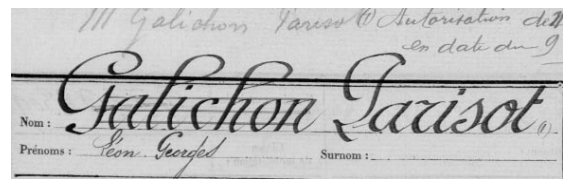 M Galichon Parisot (1) Autorisation de
en date du 9
Nom : Galichon Parisot (1)
Prénoms : Léon Georges Surnom :